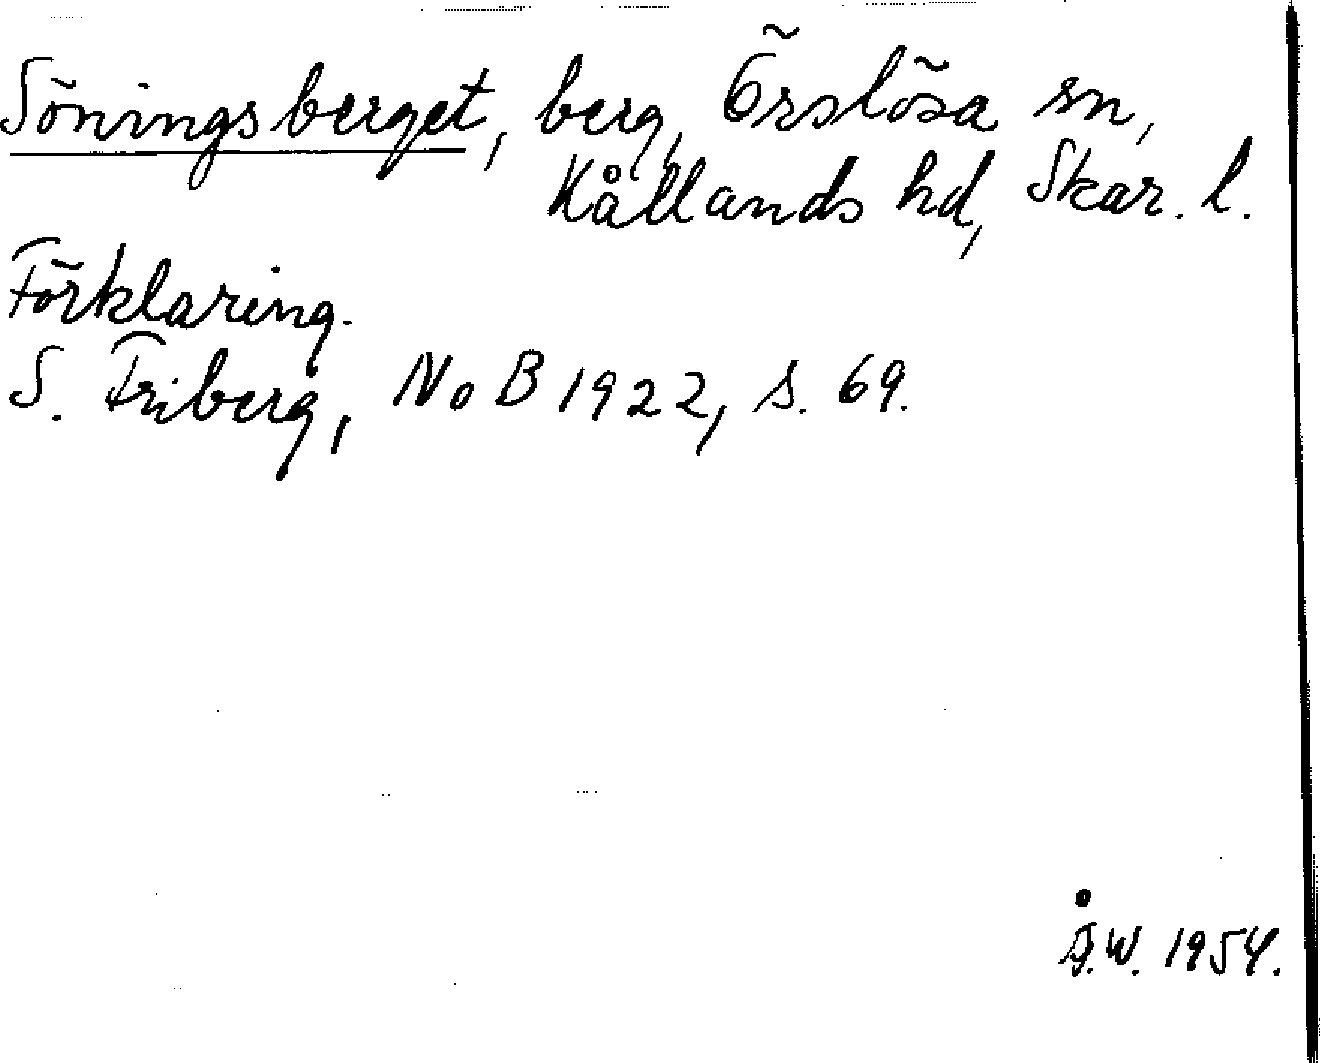 Söningsberget, berg, Örslösa sn,
Kållands hd, Skar. l.
Förklaring.
S. Friberg, NoB 1922, s. 69.
Å.W. 1954.